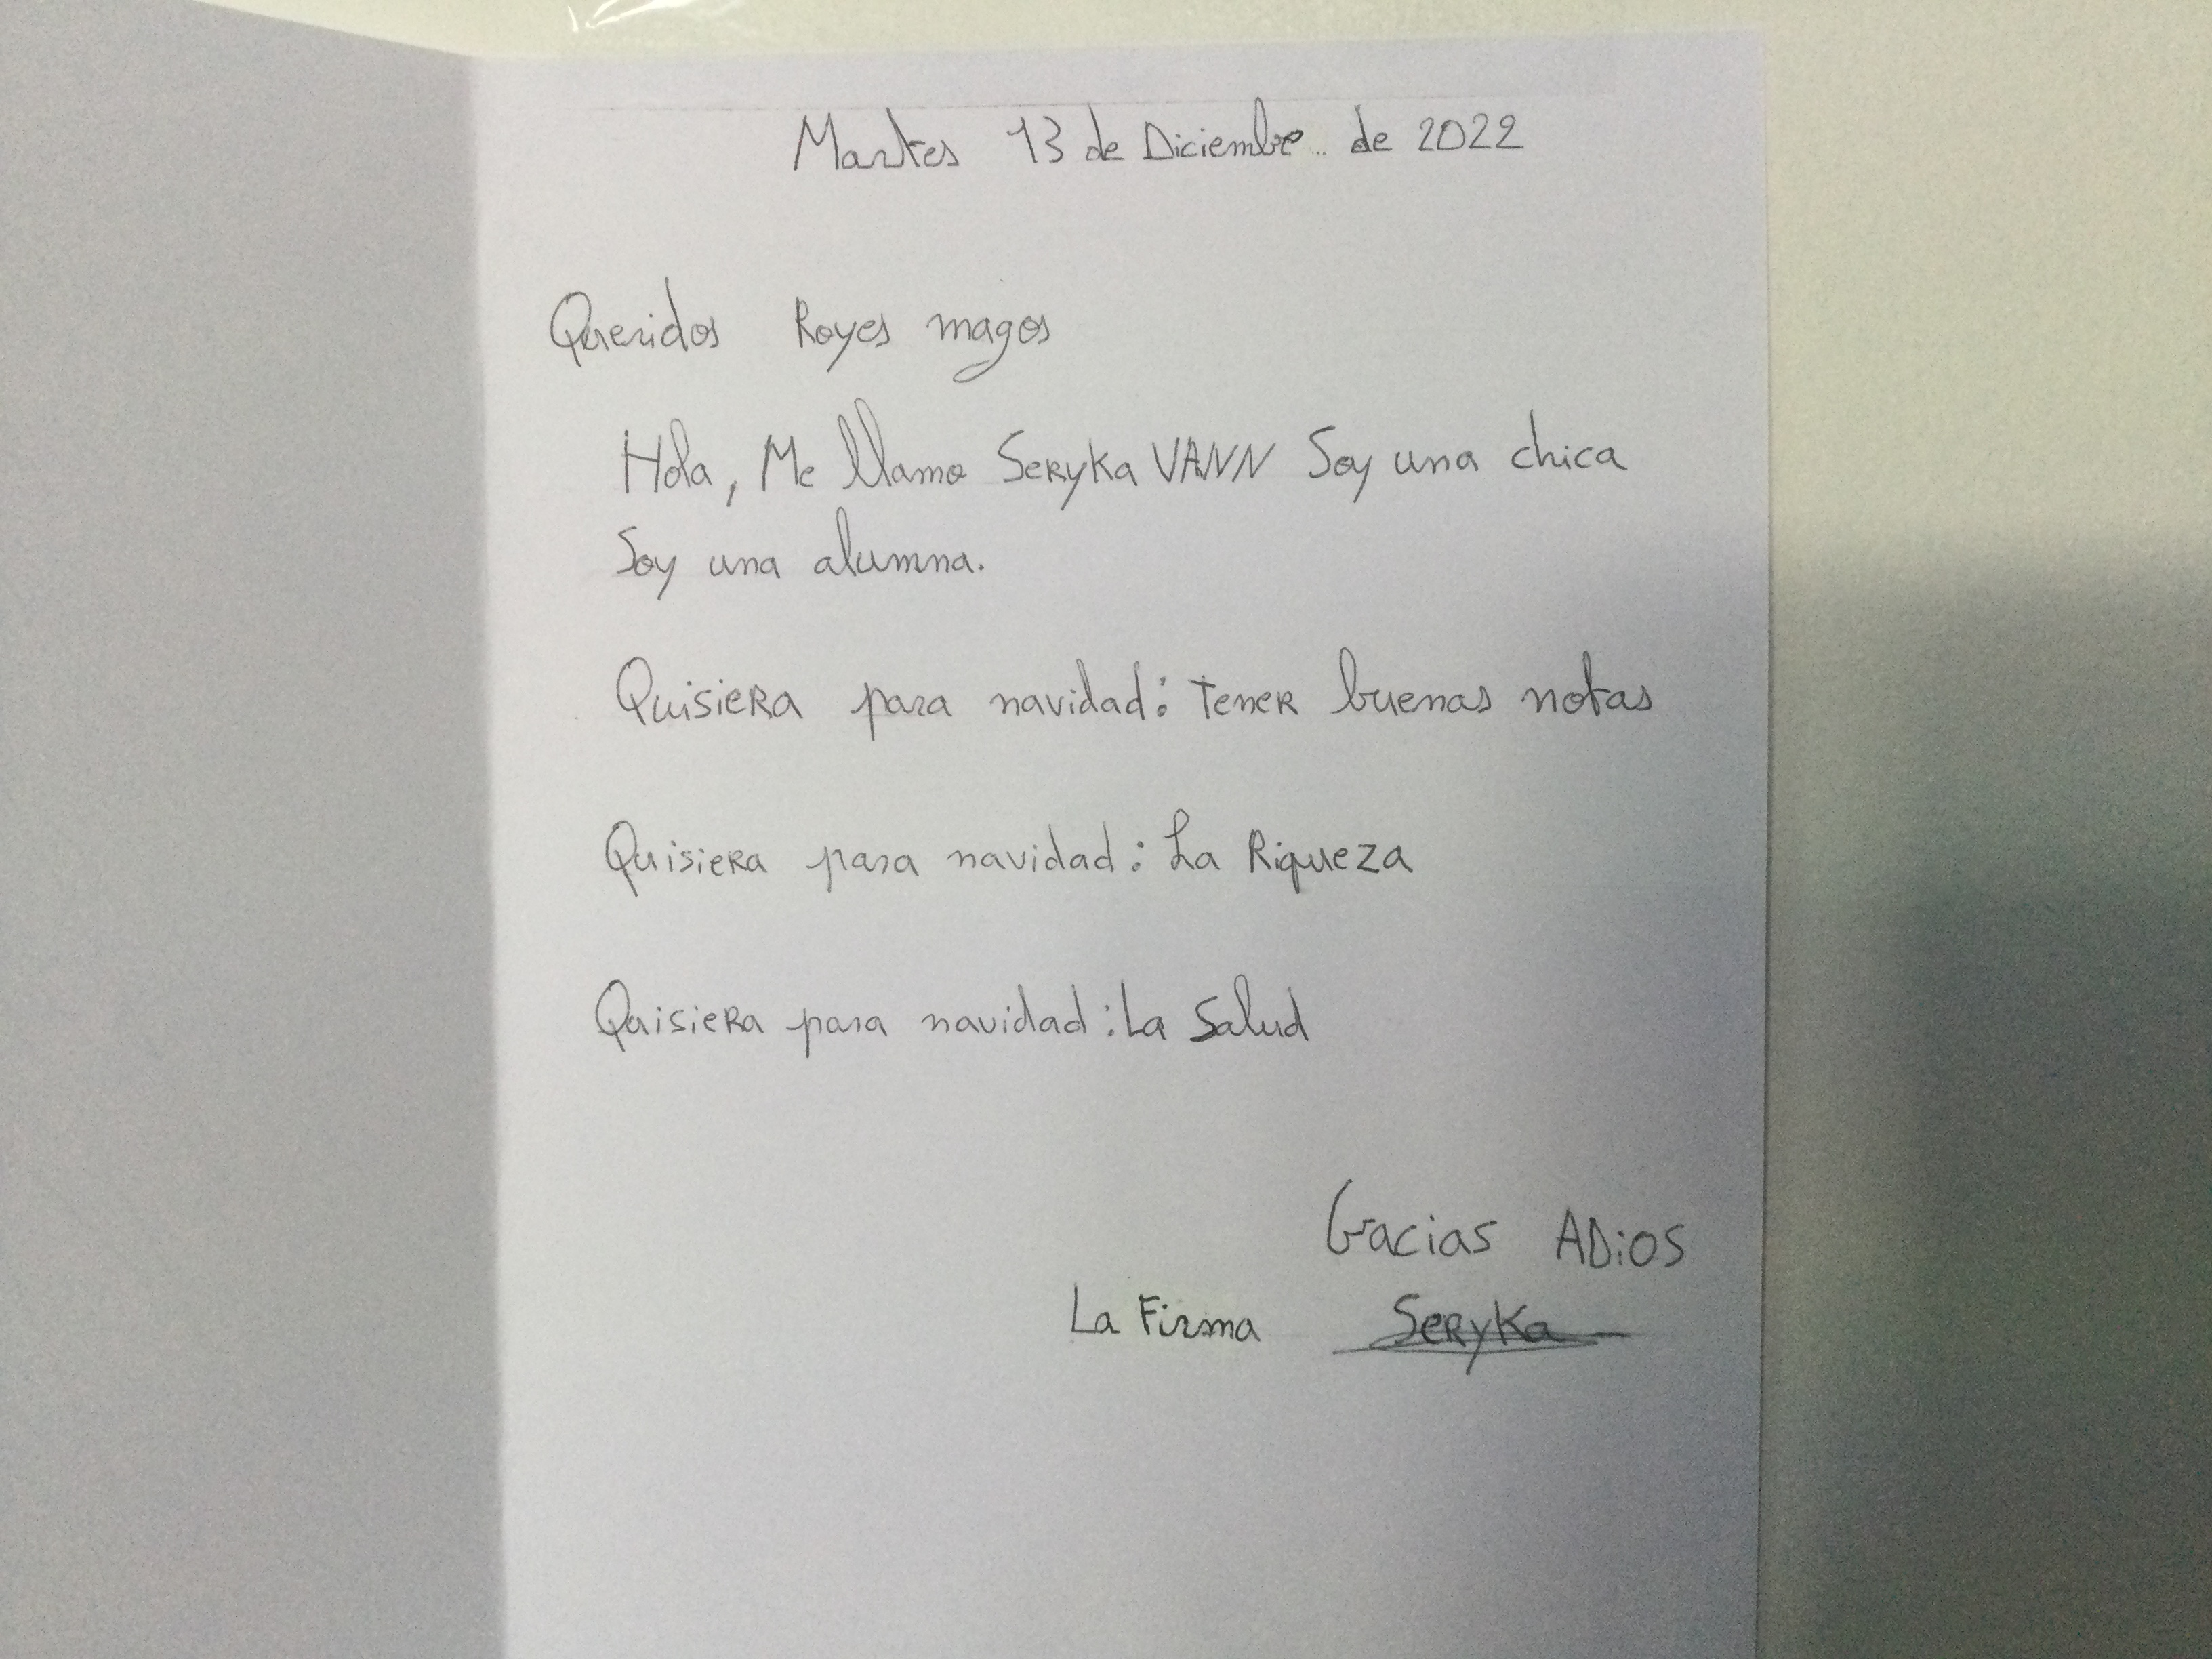 Martes 13 de Diciembre de 2022
Queridos Royes magos
Hola, Me llamo Seryka VANN Soy una chica
Soy una alumna.
Quisiera para navidad: tener buenas notas
Quisiera para navidad: La Riqueza
Quisiera para navidad: La Salud
Gacias ADios
La Firma Seryka